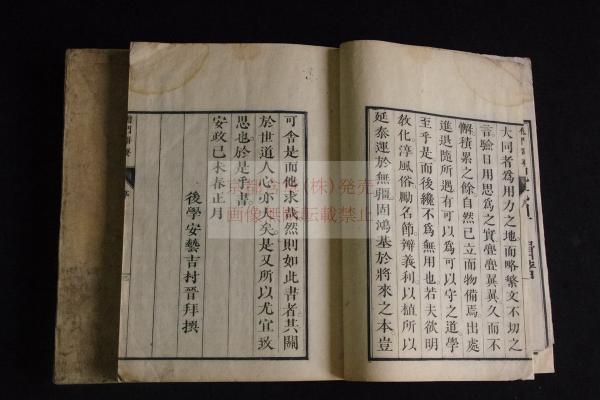 大同者爲用力之地而略繁文不切之
言驗日用思爲之實亹亹異異久而不
懈積累之餘自然已立而物備焉出處
進退隨所遇有可以爲可以守之道學
至乎是而後纔不爲無用也若夫欲明
敎化淳風俗勵名節辨義利以植所以
延泰運於無疆固鴻基於將來之本豈
可舍是而他求哉然則如此書者其關
於世道人心亦大矣是又所以尤宜致
思也於是乎書
安政己未春正月
後學安藝吉村晉拜撰
京都書店(株)発売
画像無断転載禁止